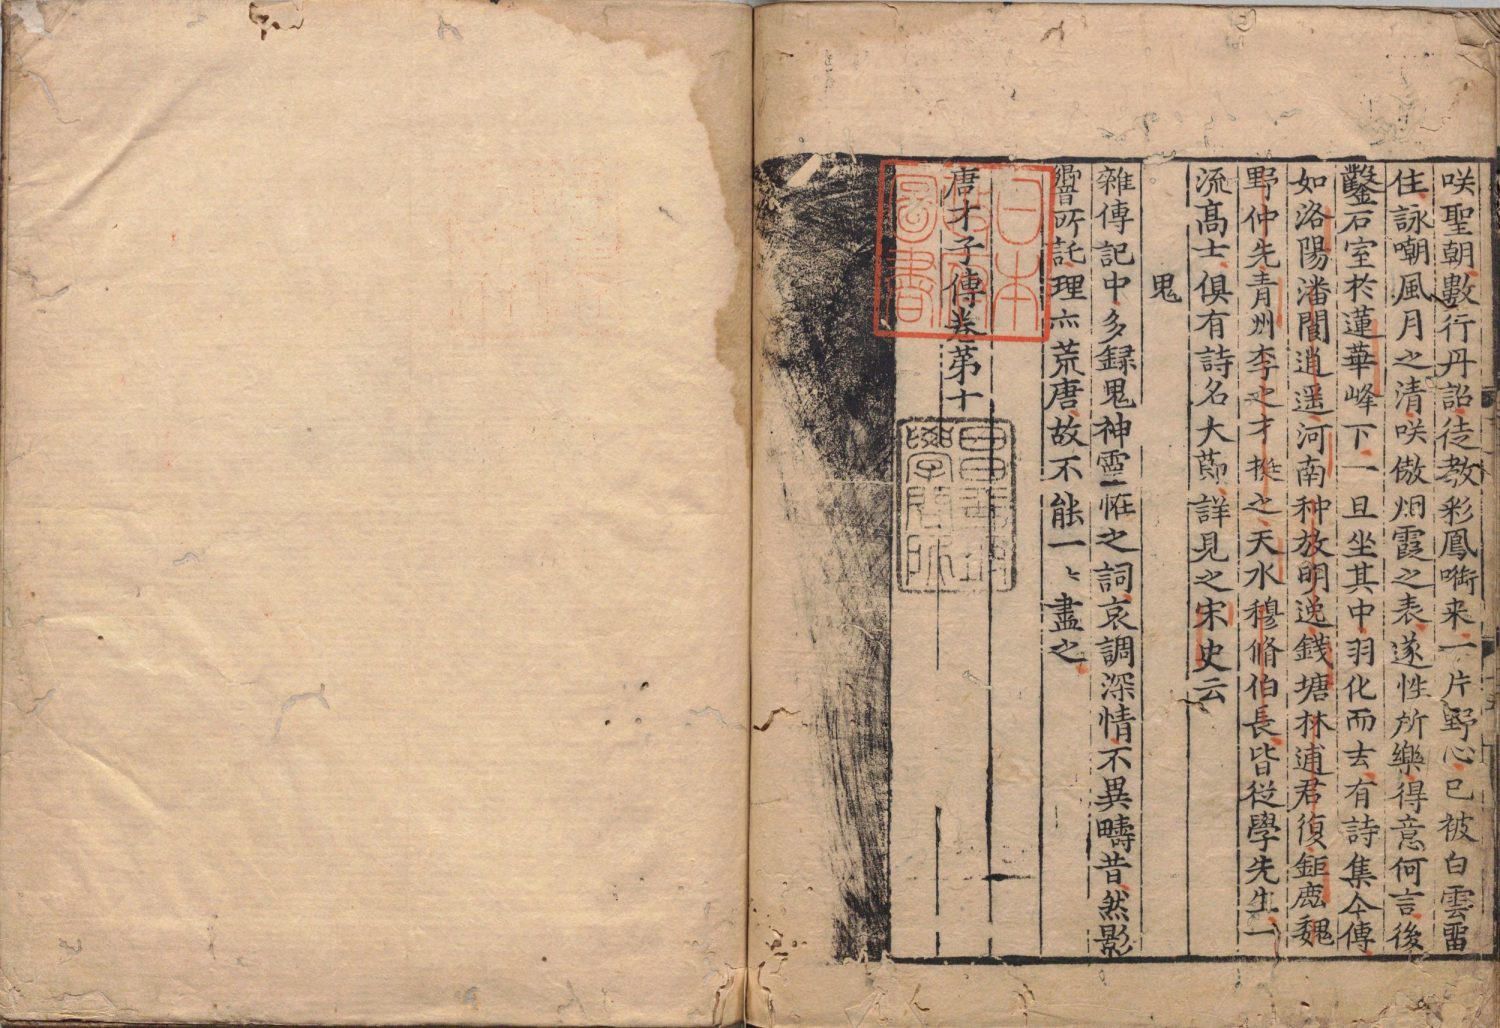 咲聖朝數行丹詔徒教彩鳳啣来一片野心已被白雲畱
住詠嘲風月之清咲傲烟霞之表遂性所樂得意何言後
鑿石室於蓮華峰下一旦坐其中羽化而去有詩集今傳
如洛陽潘閬逍遥河南种放明逸錢塘林逋君復鉅鹿魏
野仲先青州李之才挺之天水穆脩伯長皆從學先生一
流髙士俱有詩名大莭詳見之宋史云
鬼
雜傳記中多録鬼神靈怪之詞哀調深情不異疇昔然影
響所託理亦荒唐故不能一〻盡之
唐才子傳卷第十
日本
政府
圖書
昌平坂
學問所